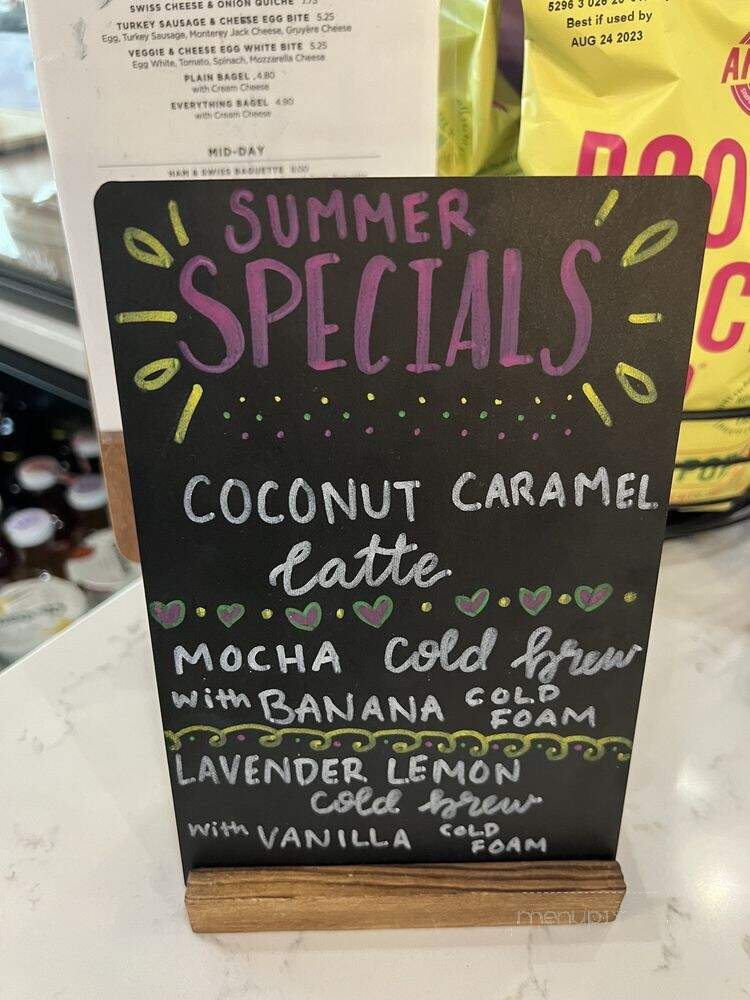 SWISS CHEESE & ONION QUICHE 7.75
TURKEY SAUSAGE & CHEESE EGG BITE 5.25
Egg, Turkey Sausage, Monterey Jack Cheese, Gruyère Cheese
VEGGIE & CHEESE EGG WHITE BITE 5.25
Egg White, Tomato, Spinach, Mozzarella Cheese
PLAIN BAGEL 4.80
with Cream Cheese
EVERYTHING BAGEL 4.90
with Cream Cheese
MID-DAY
HAM & SWISS BAGUETTE
Best if used by
AUG 24 2023
SUMMER
SPECIALS
COCONUT CARAMEL
latte
MOCHA cold brew
with BANANA COLD
FOAM
LAVENDER LEMON
cold brew
with VANILLA COLD
FOAM
menupix